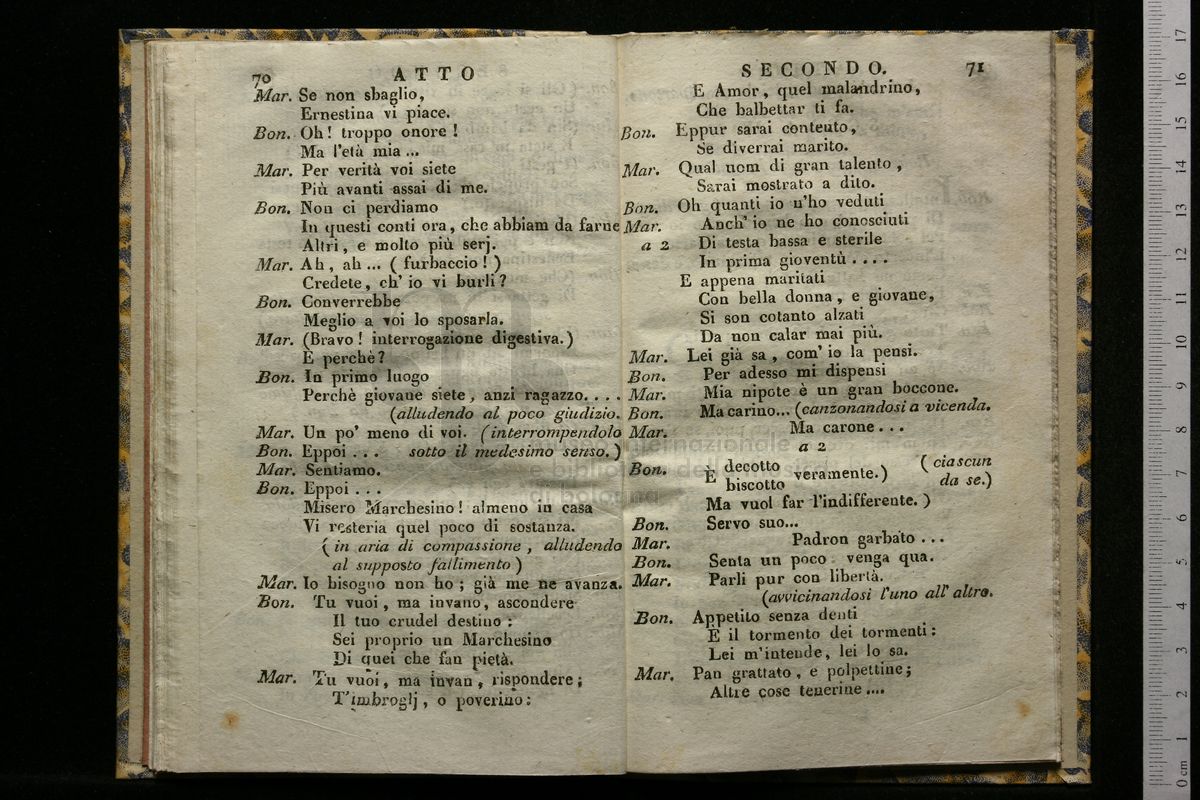 70 ATTO
Mar. Se non sbaglio,
Ernestina vi piace.
Bon. Oh! troppo onore!
Ma l'età mia ...
Mar. Per verità voi siete
Più avanti assai di me.
Bon. Non ci perdiamo
In questi conti ora, che abbiam da farne
Altri, e molto più serj.
Mar. Ah, ah ... ( furbaccio! )
Credete, ch' io vi burli?
Bon. Converrebbe
Meglio a voi lo sposarla.
Mar. (Bravo! interrogazione digestiva.)
E perchè?
Bon. In primo luogo
Perchè giovane siete, anzi ragazzo. . . .
(alludendo al poco giudizio.
Mar. Un po' meno di voi. (interrompendolo
Bon. Eppoi . . . sotto il medesimo senso.)
Mar. Sentiamo.
Bon. Eppoi . . .
Misero Marchesino! almeno in casa
Vi resteria quel poco di sostanza.
( in aria di compassione, alludendo
al supposto fallimento )
Mar. Io bisogno non ho; già me ne avanza.
Bon. Tu vuoi, ma invano, ascondere
Il tuo crudel destino:
Sei proprio un Marchesino
Di quei che fan pietà.
Mar. Tu vuoi, ma invan, rispondere;
T'imbroglj, o poverino:
SECONDO. 71
E Amor, quel malandrino,
Che balbettar ti fa.
Bon. Eppur sarai contento,
Se diverrai marito.
Mar. Qual uom di gran talento,
Sarai mostrato a dito.
Bon. Oh quanti io n'ho veduti
Mar. Anch' io ne ho conosciuti
a 2 Di testa bassa e sterile
In prima gioventù . . . .
E appena maritati
Con bella donna, e giovane,
Si son cotanto alzati
Da non calar mai più.
Mar. Lei già sa, com' io la pensi.
Bon. Per adesso mi dispensi
Mar. Mia nipote è un gran boccone.
Bon. Ma carino... (canzonandosi a vicenda.
Mar. Ma carone . . .
a 2
Bon. È decotto veramente.) ( ciascun
biscotto da se.)
Ma vuol far l'indifferente. )
Bon. Servo suo...
Mar. Padron garbato . . .
Bon. Senta un poco venga qua.
Mar. Parli pur con libertà.
(avvicinandosi l'uno all' altro.
Bon. Appetito senza denti
E il tormento dei tormenti:
Lei m'intende, lei lo sa.
Mar. Pan grattato, e polpettine;
Altre cose tenerine ....
museo internazionale
e biblioteca della musica
di bologna
0 cm 1 2 3 4 5 6 7 8 9 10 11 12 13 14 15 16 17